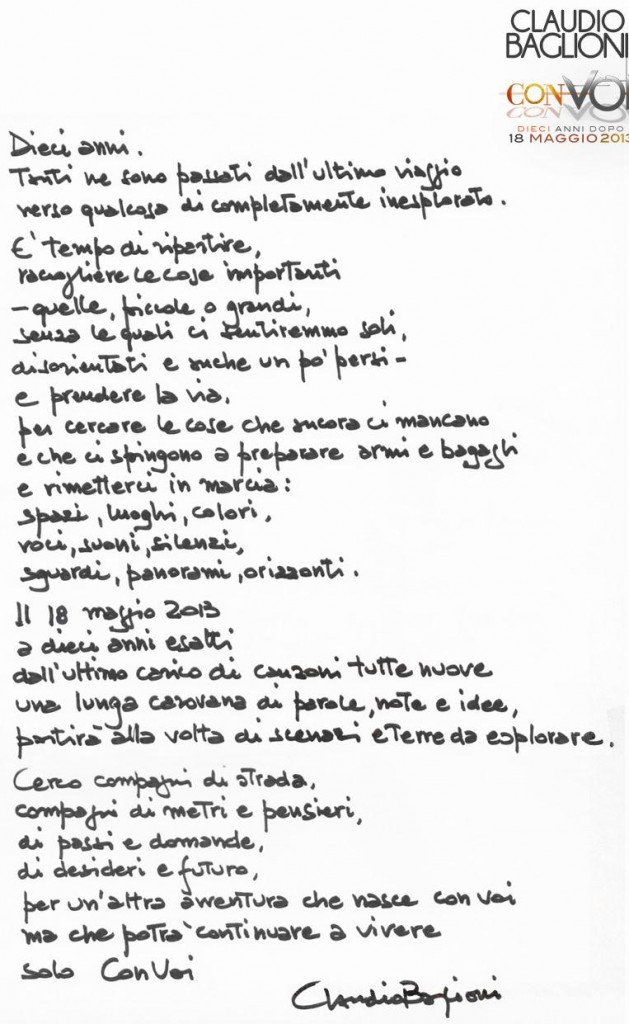 CLAUDIO
BAGLIONI
CONVOI
DIECI ANNI DOPO
18 MAGGIO 2013
Dieci anni.
Tanti ne sono passati dall'ultimo viaggio
verso qualcosa di completamente inesplorato.
E' tempo di ripartire,
raccogliere le cose importanti
-quelle, piccole o grandi,
senza le quali ci sentiremmo soli,
disorientati e anche un po' persi-
e prendere la via,
per cercare le cose che ancora ci mancano
e che ci spingono a preparare armi e bagagli
e rimetterci in marcia:
spazi, luoghi, colori,
voci, suoni, silenzi,
sguardi, panorami, orizzonti.
Il 18 maggio 2013
a dieci anni esatti
dall'ultimo carico di canzoni tutte nuove
una lunga carovana di parole, note e idee,
partirà alla volta di scenari e terre da esplorare.
Cerco compagni di strada,
compagni di metri e pensieri,
di passi e domande,
di desideri e futuro,
per un'altra avventura che nasce con voi
ma che potrà continuare a vivere
solo ConVoi
Claudio Baglioni